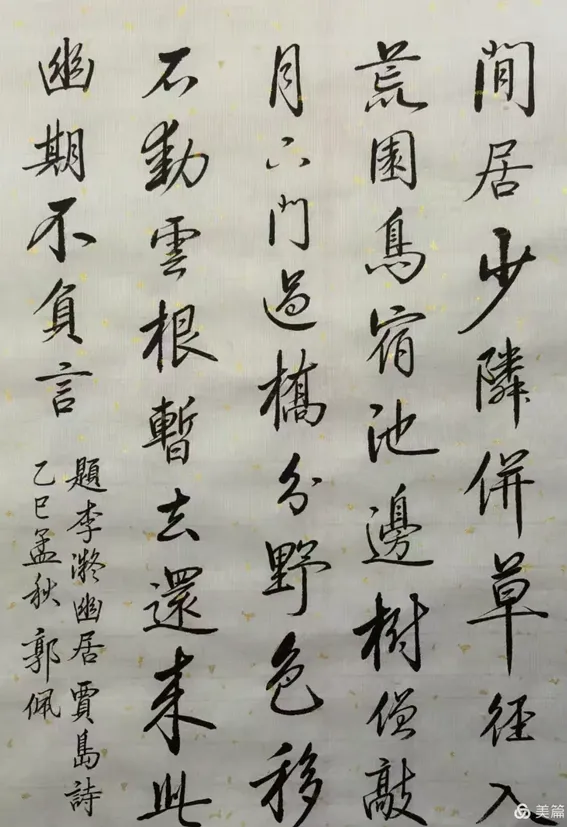 閒居少隣併草徑入
荒園鳥宿池邊樹僧敲
月下門過橋分野色移
石動雲根暫去還來此
幽期不負言
題李凝幽居 賈島詩
乙巳孟秋 郭佩
美篇